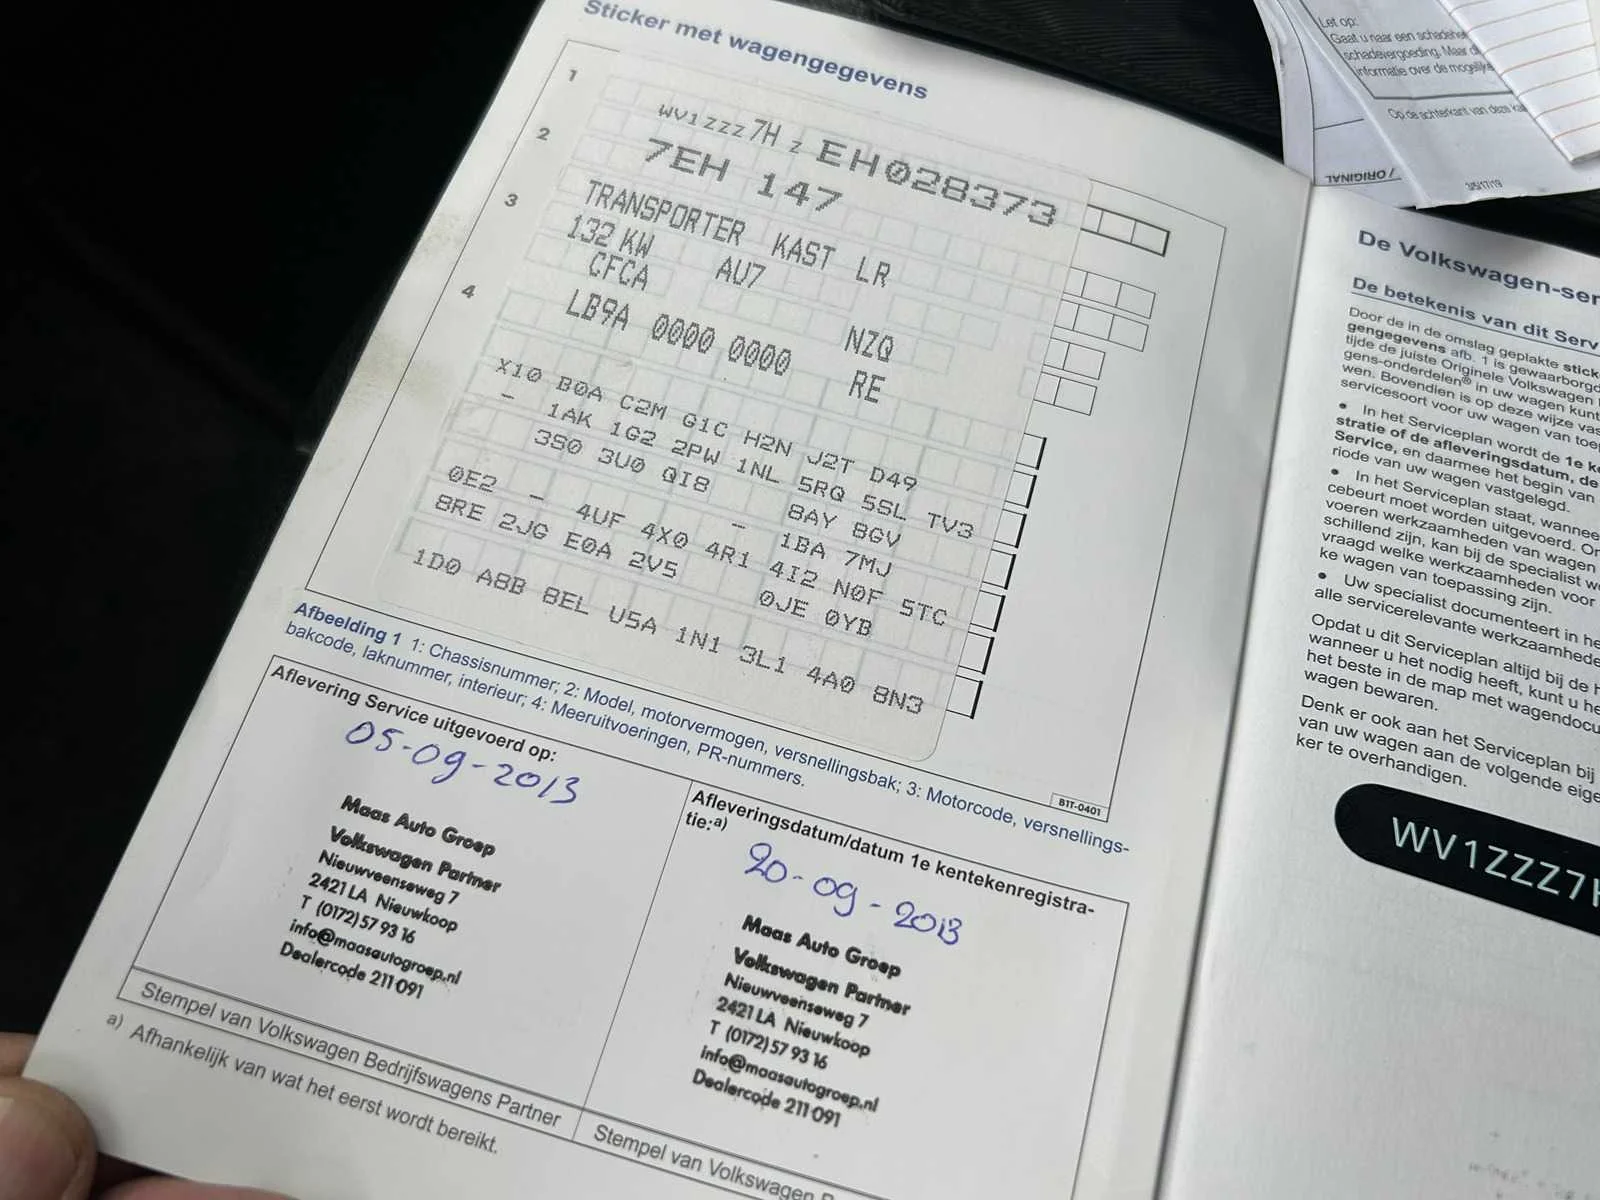 Sticker met wagengegevens
1
WV1ZZZ7H Z EH028373
2
7EH 147
TRANSPORTER KAST LR
3
132 KW AU7
CFCA NZQ
4
LB9A 0000 0000 RE
X10 B0A C2M G1C H2N J2T D49
- 1AK 1G2 2PW 1NL 5RQ 5SL TV3
3S0 3U0 QI8 8AY 8GV
0E2 - 4UF 4X0 - 1BA 7MJ
8RE 2JG E0A 2V5 4R1 4I2 N0F 5TC
0JE 0YB
1D0 A8B 8EL U5A 1N1 3L1 4A0 8N3
B1T-0401
Afbeelding 1 1: Chassisnummer; 2: Model, motorvermogen, versnellingsbak; 3: Motorcode, versnellings-
bakcode, laknummer, interieur; 4: Meeruitvoeringen, PR-nummers.
Aflevering Service uitgevoerd op:
05-09-2013
Maas Auto Groep
Volkswagen Partner
Nieuwveenseweg 7
2421 LA Nieuwkoop
T (0172) 57 93 16
info@maasautogroep.nl
Dealercode 211 091
Stempel van Volkswagen Bedrijfswagens Partner
Afleveringsdatum/datum 1e kentekenregistra-
tie:a)
20-09-2013
Maas Auto Groep
Volkswagen Partner
Nieuwveenseweg 7
2421 LA Nieuwkoop
T (0172) 57 93 16
info@maasautogroep.nl
Dealercode 211 091
Stempel van Volkswagen
a) Afhankelijk van wat het eerst wordt bereikt.
Let op:
Gaat u naar een
schadevergoeding. Maar
informatie over de
Op de achterkant van deze
/ ORIGINAL
De Volkswagen-ser
De betekenis van dit Serv
Door de in de omslag geplakte stick
gengegevens afb. 1 is gewaarborgd
tijde de juiste Originele Volkswagen
gens-onderdelen® in uw wagen kunt
wen. Bovendien is op deze wijze vas
servicesoort voor uw wagen van toe
• In het Serviceplan wordt de 1e ke
stratie of de afleveringsdatum, de
Service, en daarmee het begin van
riode van uw wagen vastgelegd.
• In het Serviceplan staat, wannee
cebeurt moet worden uitgevoerd. Om
voeren werkzaamheden van wagen
schillend zijn, kan bij de specialist wo
vraagd welke werkzaamheden voor
ke wagen van toepassing zijn.
• Uw specialist documenteert in he
alle servicerelevante werkzaamhede
Opdat u dit Serviceplan altijd bij de h
wanneer u het nodig heeft, kunt u he
het beste in de map met wagendocu
wagen bewaren.
Denk er ook aan het Serviceplan bij
van uw wagen aan de volgende eige
ker te overhandigen.
WV1ZZZ7H